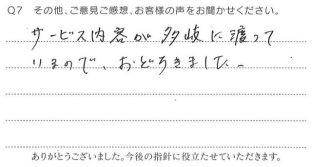 Q7 その他、ご意見ご感想、お客様の声をお聞かせください。
サービス内容が多岐に渡って
いるので、おどろきました。
ありがとうございました。今後の指針に役立たせていただきます。